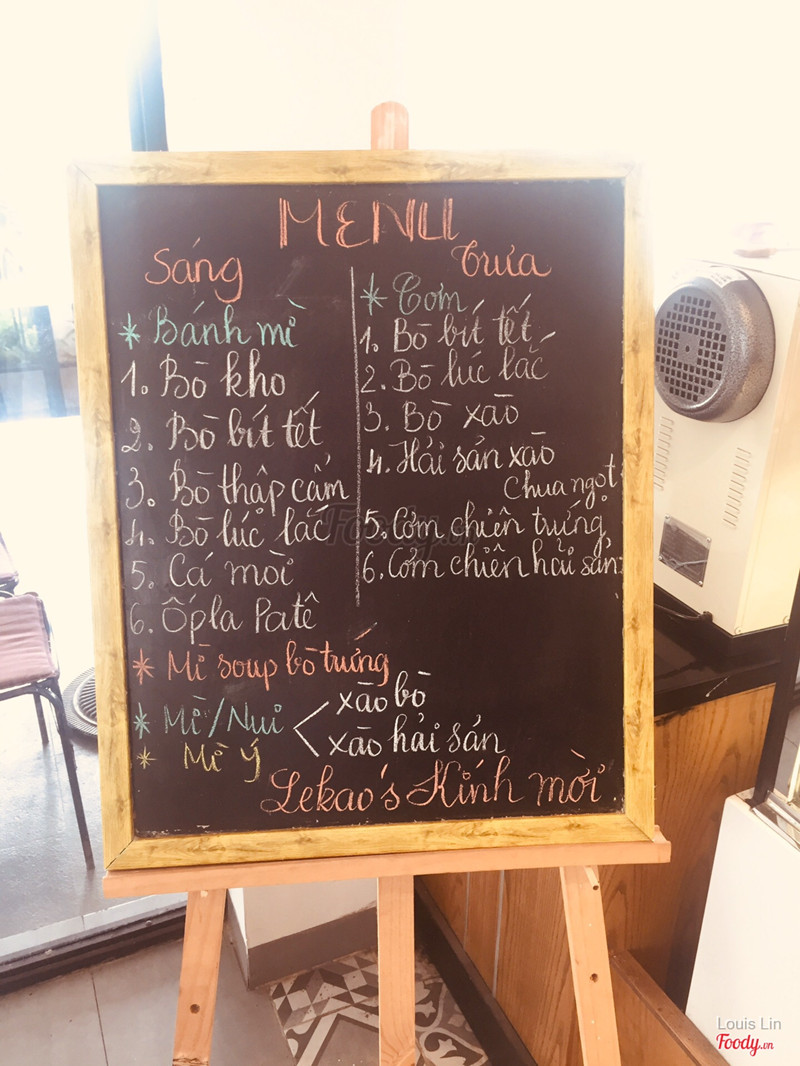 MENU
Sáng
* Bánh mì
1. Bò kho
2. Bò bít tết
3. Bò thập cẩm
4. Bò lúc lắc
5. Cá mòi
6. Ốpla Patê
* Mì soup bò trứng
* Mì/Nui < xào bò
xào hải sản
* Mì Ý
Trưa
* Cơm
1. Bò bít tết
2. Bò lúc lắc
3. Bò xào
4. Hải sản xào
Chua ngọt
5. Cơm chiên trứng
6. Cơm chiên hải sản
Lekao's Kính mời
Foody.vn
Louis Lin
Foody.vn